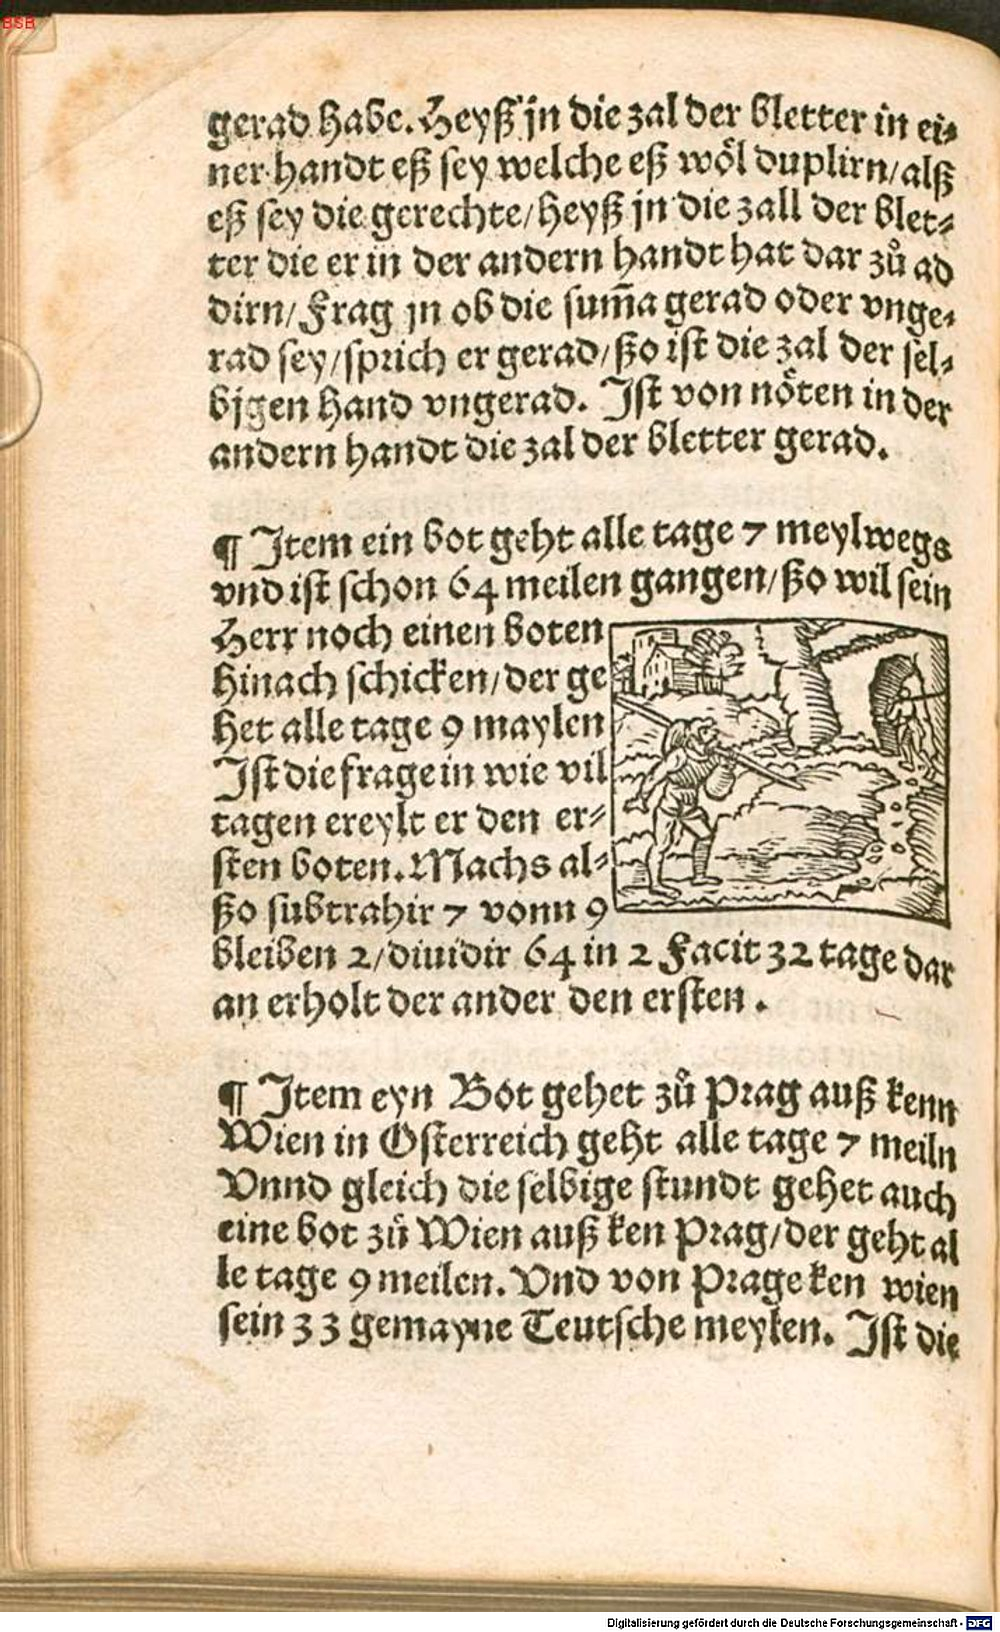 BSB
gerad habe. Heyß jn die zal der bletter in ei⸗
ner handt eß sey welche eß wöl duplirn/alß
eß sey die gerechte/heyß jn die zall der blet⸗
ter die er in der andern handt hat dar zů ad
dirn/Frag jn ob die sum̃a gerad oder vnge⸗
rad sey/sprich er gerad/ßo ist die zal der sel⸗
bjgen hand vngerad. Jst von nöten in der
andern handt die zal der bletter gerad.
¶ Jtem ein bot geht alle tage 7 meylwegs
vnd ist schon 64 meilen gangen/ßo wil sein
Herr noch einen boten
hinach schicken/der ge
het alle tage 9 maylen
Jst die frage in wie vil
tagen ereylt er den er⸗
sten boten. Machs al⸗
ßo subtrahir 7 vonn 9
bleiben 2/diuidir 64 in 2 Facit 32 tage dar
an erholt der ander den ersten.
¶ Jtem eyn Bot gehet zů Prag auß kenn
Wien in Osterreich geht alle tage 7 meiln
Vnnd gleich die selbige stundt gehet auch
eine bot zů Wien auß ken Prag/der geht al
le tage 9 meilen. Vnd von Prage ken wien
sein 33 gemayne Teutsche meylen. Jst die
Digitalisierung gefördert durch die Deutsche Forschungsgemeinschaft - DFG